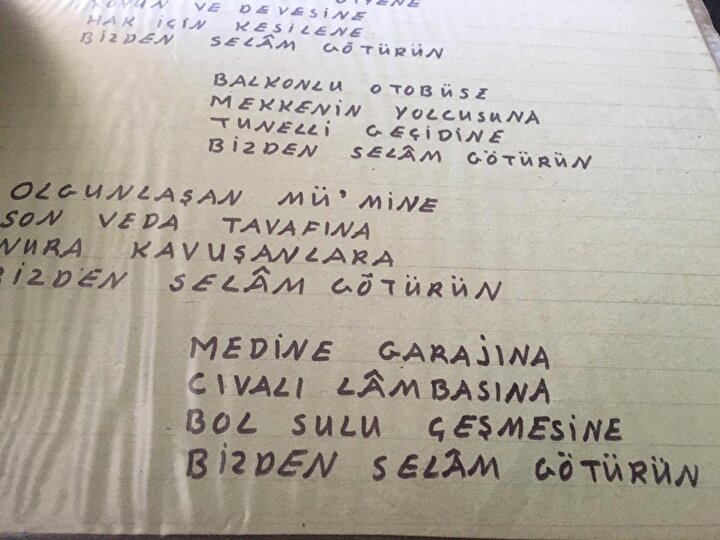 KOYUN VE DEVESİNE
HAK İÇİN KESİLENE
BİZDEN SELÂM GÖTÜRÜN
BALKONLU OTOBÜSE
MEKKENİN YOLCUSUNA
TUNELLİ GEÇİDİNE
BİZDEN SELÂM GÖTÜRÜN
OLGUNLAŞAN MÜ'MİNE
SON VEDA TAVAFINA
NURA KAVUŞANLARA
BİZDEN SELÂM GÖTÜRÜN
MEDİNE GARAJINA
CIVALI LÂMBASINA
BOL SULU ÇEŞMESİNE
BİZDEN SELÂM GÖTÜRÜN